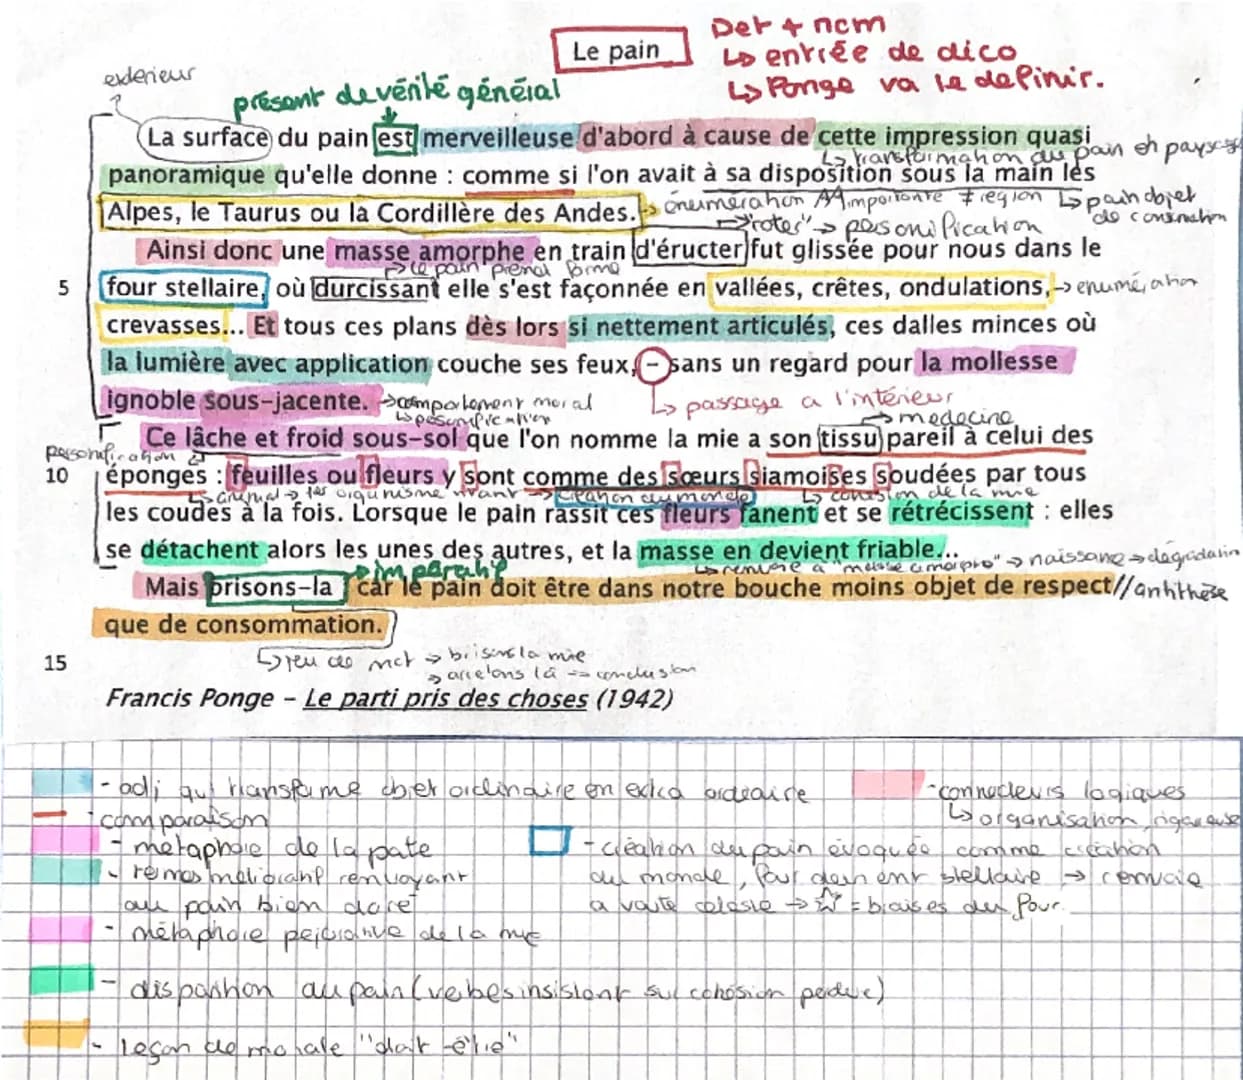 Le pain
Det + ncm
↳ entrée de dico
↳ Ponge va le definir.
exterieur
présent de vérité général
La surface du pain est merveilleuse d'abord à cause de cette impression quasi
↳ transformation du pain en paysage
panoramique qu'elle donne : comme si l'on avait à sa disposition sous la main les
Alpes, le Taurus ou la Cordillère des Andes.
→ énumération importante ≠ region
↳ pain objet de consommation
→ "roter" → personification
Ainsi donc une masse amorphe en train d'éructer fut glissée pour nous dans le
→ le pain prend forme
5 four stellaire, où durcissant elle s'est façonnée en vallées, crêtes, ondulations,
→ enumération
crevasses... Et tous ces plans dès lors si nettement articulés, ces dalles minces où
la lumière avec application couche ses feux, - sans un regard pour la mollesse
ignoble sous-jacente.
→ comportement moral
↳ personification
↳ passage a l'intérieur
→ medecine
Ce lâche et froid sous-sol que l'on nomme la mie a son tissu pareil à celui des
personification
10 éponges : feuilles ou fleurs y sont comme des sœurs siamoises soudées par tous
↳ animal → 1er organisme vivant → création du monde
↳ cohésion de la mie
les coudes à la fois. Lorsque le pain rassit ces fleurs fanent et se rétrécissent : elles
se détachent alors les unes des autres, et la masse en devient friable...
↳ renvoie a "masse amorphe" → naissance → dégradation
→ imperatif
Mais brisons-la car le pain doit être dans notre bouche moins objet de respect // antithèse
que de consommation.
↳ jeu de mot → brisons la mie
→ arretons là → conclusion
15
Francis Ponge – Le parti pris des choses (1942)
- adj qui transforme objet ordinaire en extra ordinaire
- connecteurs logiques
↳ organisation rigoureuse
- comparaison
- métaphore de la pate
- termes mélioratif renvoyant
au pain bien doré
- création du pain évoquée comme création
du monde, four devient stellaire → renvoie
a voute céleste → ☆ = braises du four.
- métaphore péjorative de la mie
- disparition du pain (verbes insistant sur cohésion perdue)
- leçon de morale "doit être"